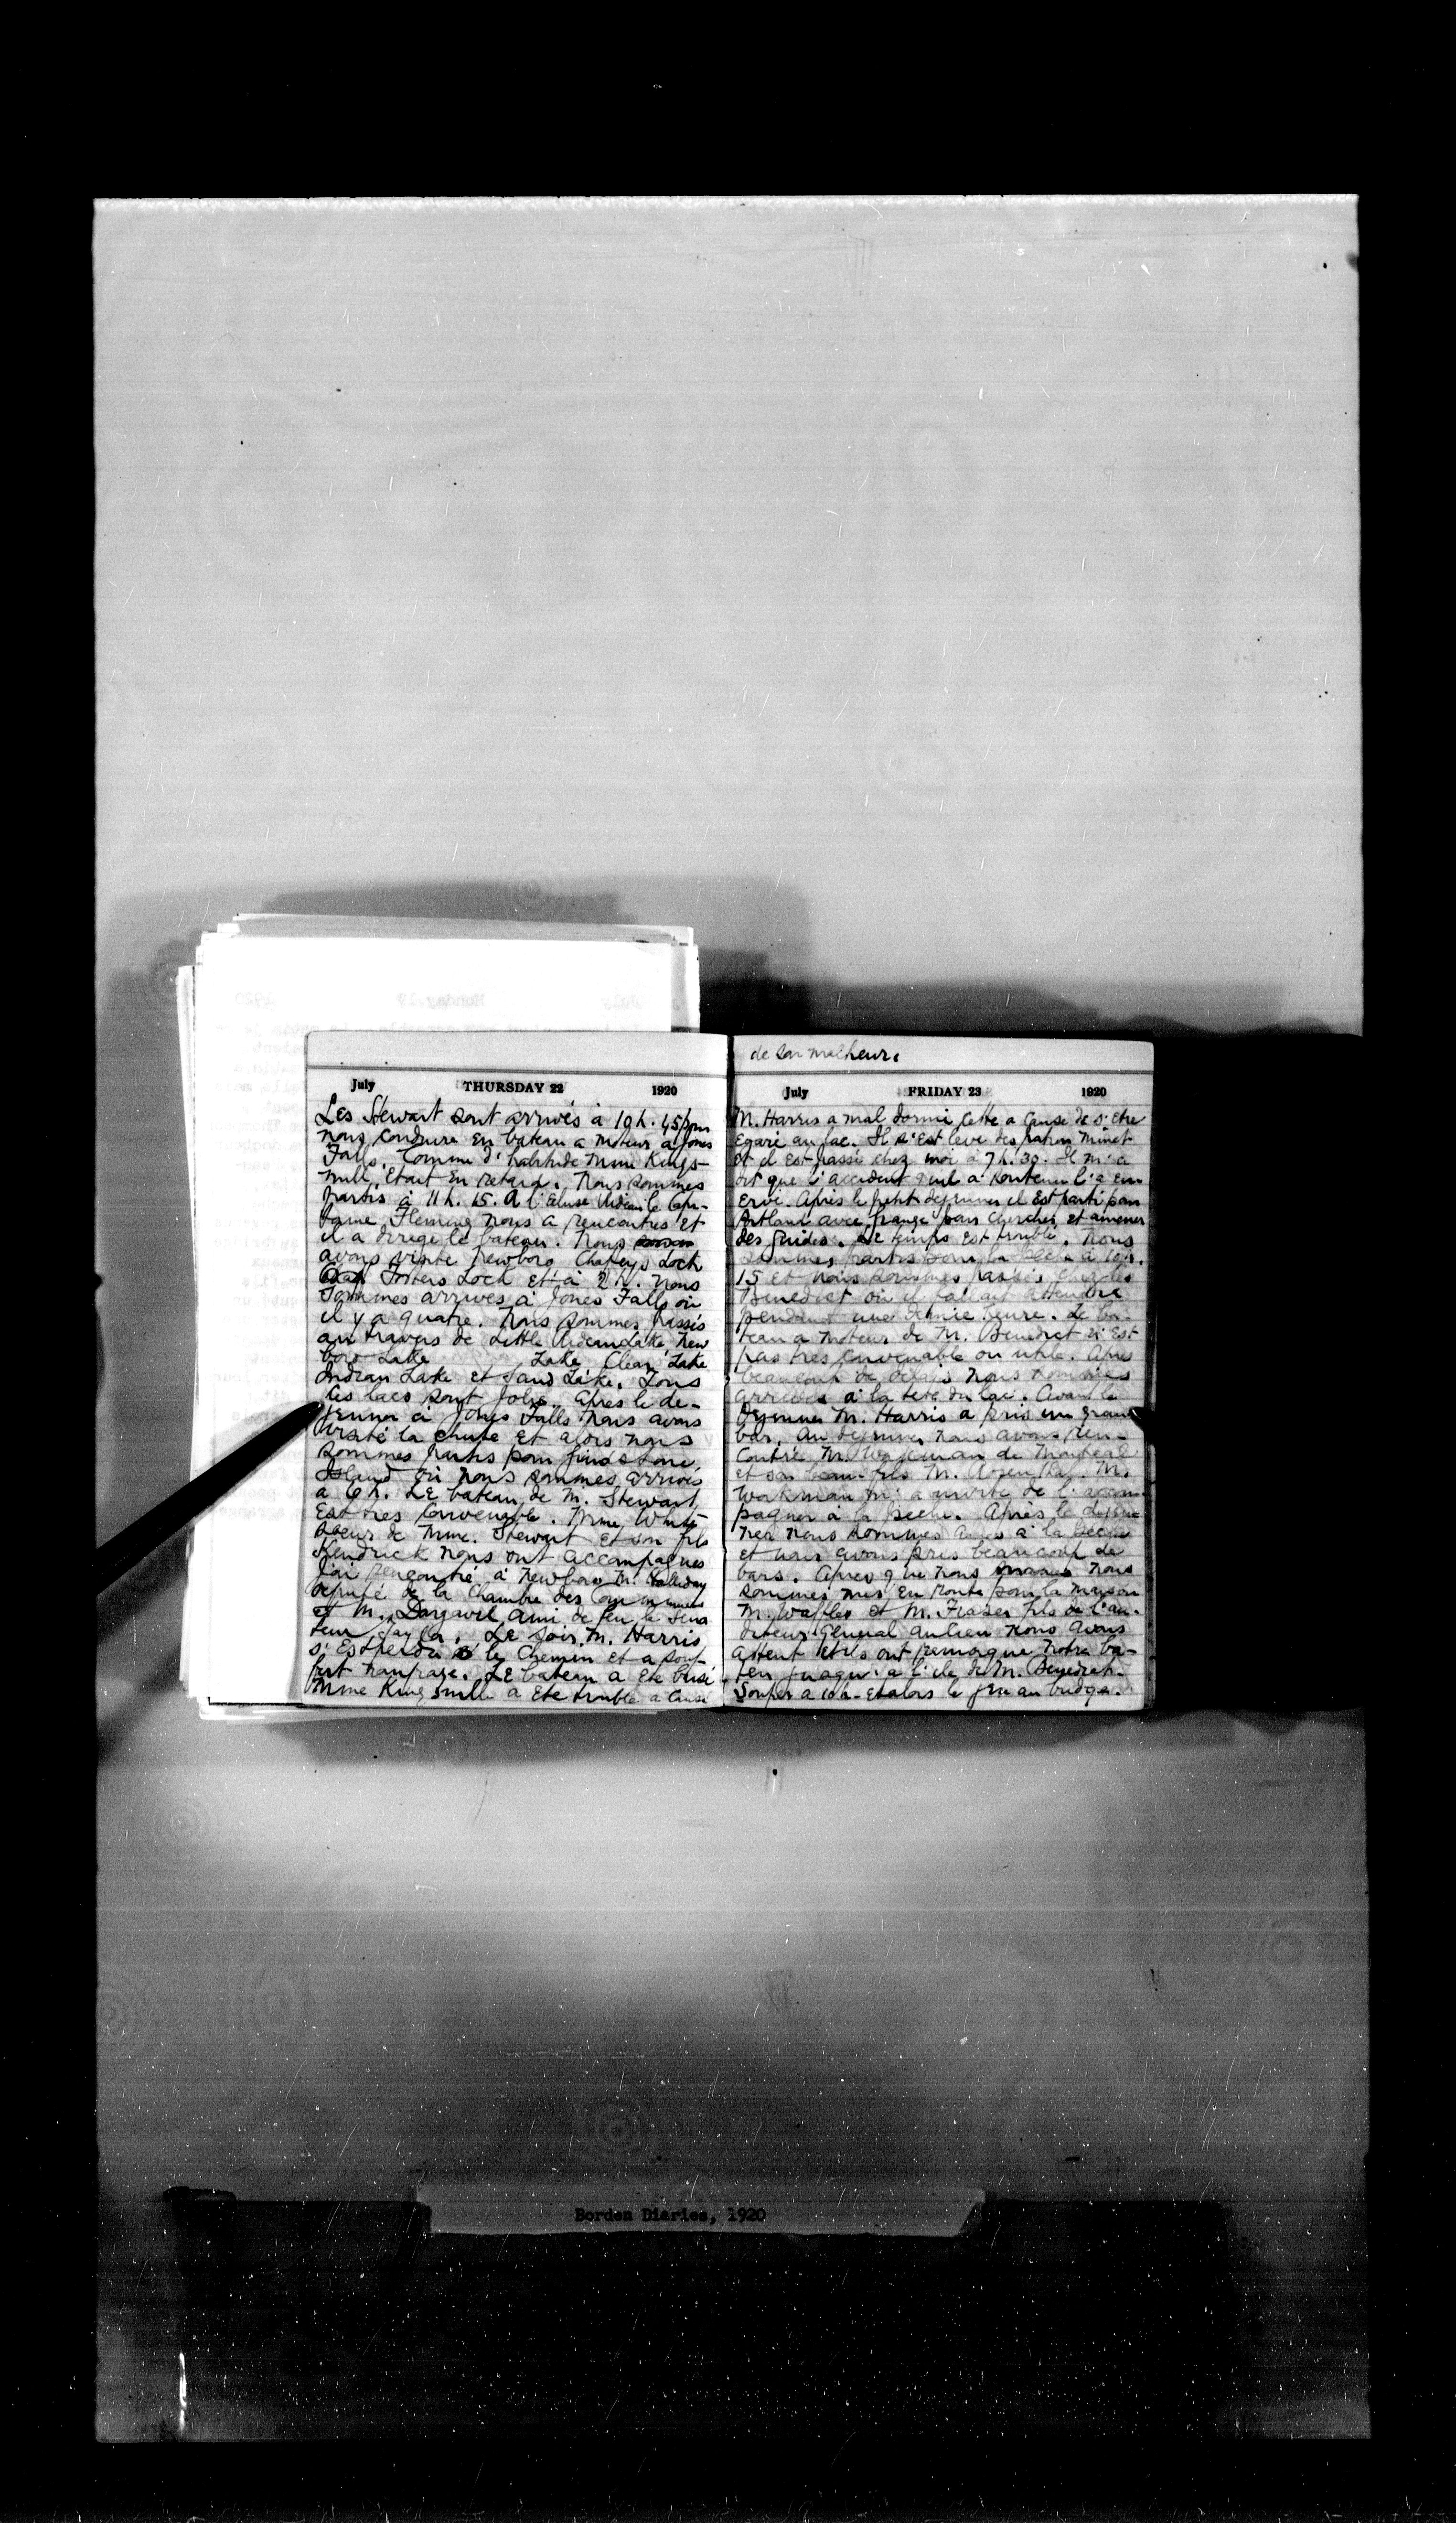 July THURSDAY 22 1920
Les Stewart sont arrivés à 10 h. 45 pour
nous conduire en bateau a moteur à Jones
Falls. Comme d'habitude Mme Kings-
mill était en retard. Nous sommes
partis à 11 h. 15. A l'Ecluse Rideau le Capi-
taine Fleming nous a rencontrés et
il a dirigé le bateau. Nous
avons visité Newboro Chafeys Lock
Fosters Lock et à 2 h. nous
sommes arrivés à Jones Falls où
il y a quatre. Nous sommes passés
au travers de Little Rideau Lake New
boro Lake Lake Clear Lake
Indian Lake et Sand Lake. Tous
les lacs sont jolis. Après le de-
jeuner à Jones Falls nous avons
visité la chute et alors nous
sommes partis pour Grindstone
Island où nous sommes arrivés
à 6 h. Le bateau de M. Stewart
est très convenable. Mme White
soeur de Mme. Stewart et son fils
Kendrick nous ont accompagnés
J'ai rencontré à Newboro M. Halliday
député de la Chambre des Communes
et M. Dargavel ami de feu le Sena
teur Taylor. Le soir M. Harris
s'est perdu le chemin et a souf-
fert naufrage. Le bateau a été brisé
Mme Kingsmill a été trouble a cause
de son malheur.
July FRIDAY 23 1920
M. Harris a mal dormi cette a cause de s'etre
égaré au lac. Il s'est levé des patron minet
et il est passé chez moi à 7 h. 30. Il m'a
dit que l'accident qu'il a soutenu l'a en-
ervé. Après le petit dejeuner il est parti pour
Portland avec pour chercher et amener
des guides. Le temps est trouble. Nous
sommes partis pour la pêche à 10 h.
15 et nous sommes passés chez les
Benedict où il fallait attendre
pendant une demie heure. Le ba-
teau a moteur de M. Benedict n'est
pas très convenable ou utile. Après
beaucoup de délais nous sommes
arrivés à la tête du lac. Avant le
Dejeuner M. Harris a pris un grand
bar. Au dejeuner nous avons ren-
contré M. Workman de Montreal
et son beau-fils M. M.
Workman m'a invité de l'accom-
pagner à la pêche. Après le dejeu-
ner nous sommes allés à la pêche
et nous avons pris beaucoup de
bars. Après que nous nous
sommes mis en route pour la maison
M. Waffles et M. Fraser fils de l'au-
diteur General ancien nous avons
attent et ils ont remorqué notre ba-
teu jusqu'à l'ile de M. Benedict.
Souper à 10 h. et alors le jeu au bridge.
Borden Diaries, 1920